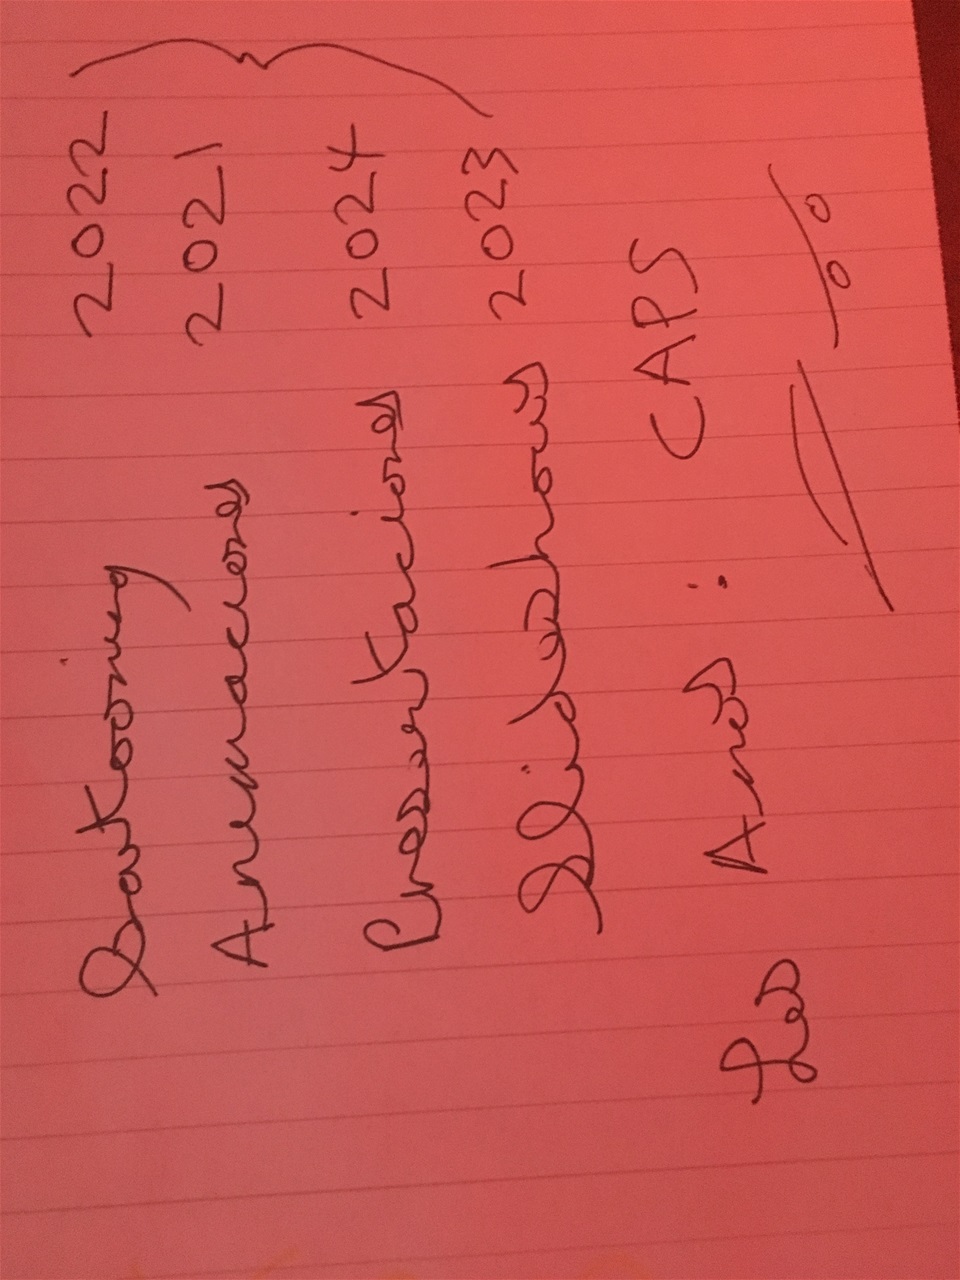 Cartooning 2022
Animaciones 2021
Presentaciones 2024
Slideshows 2023
: CAPS